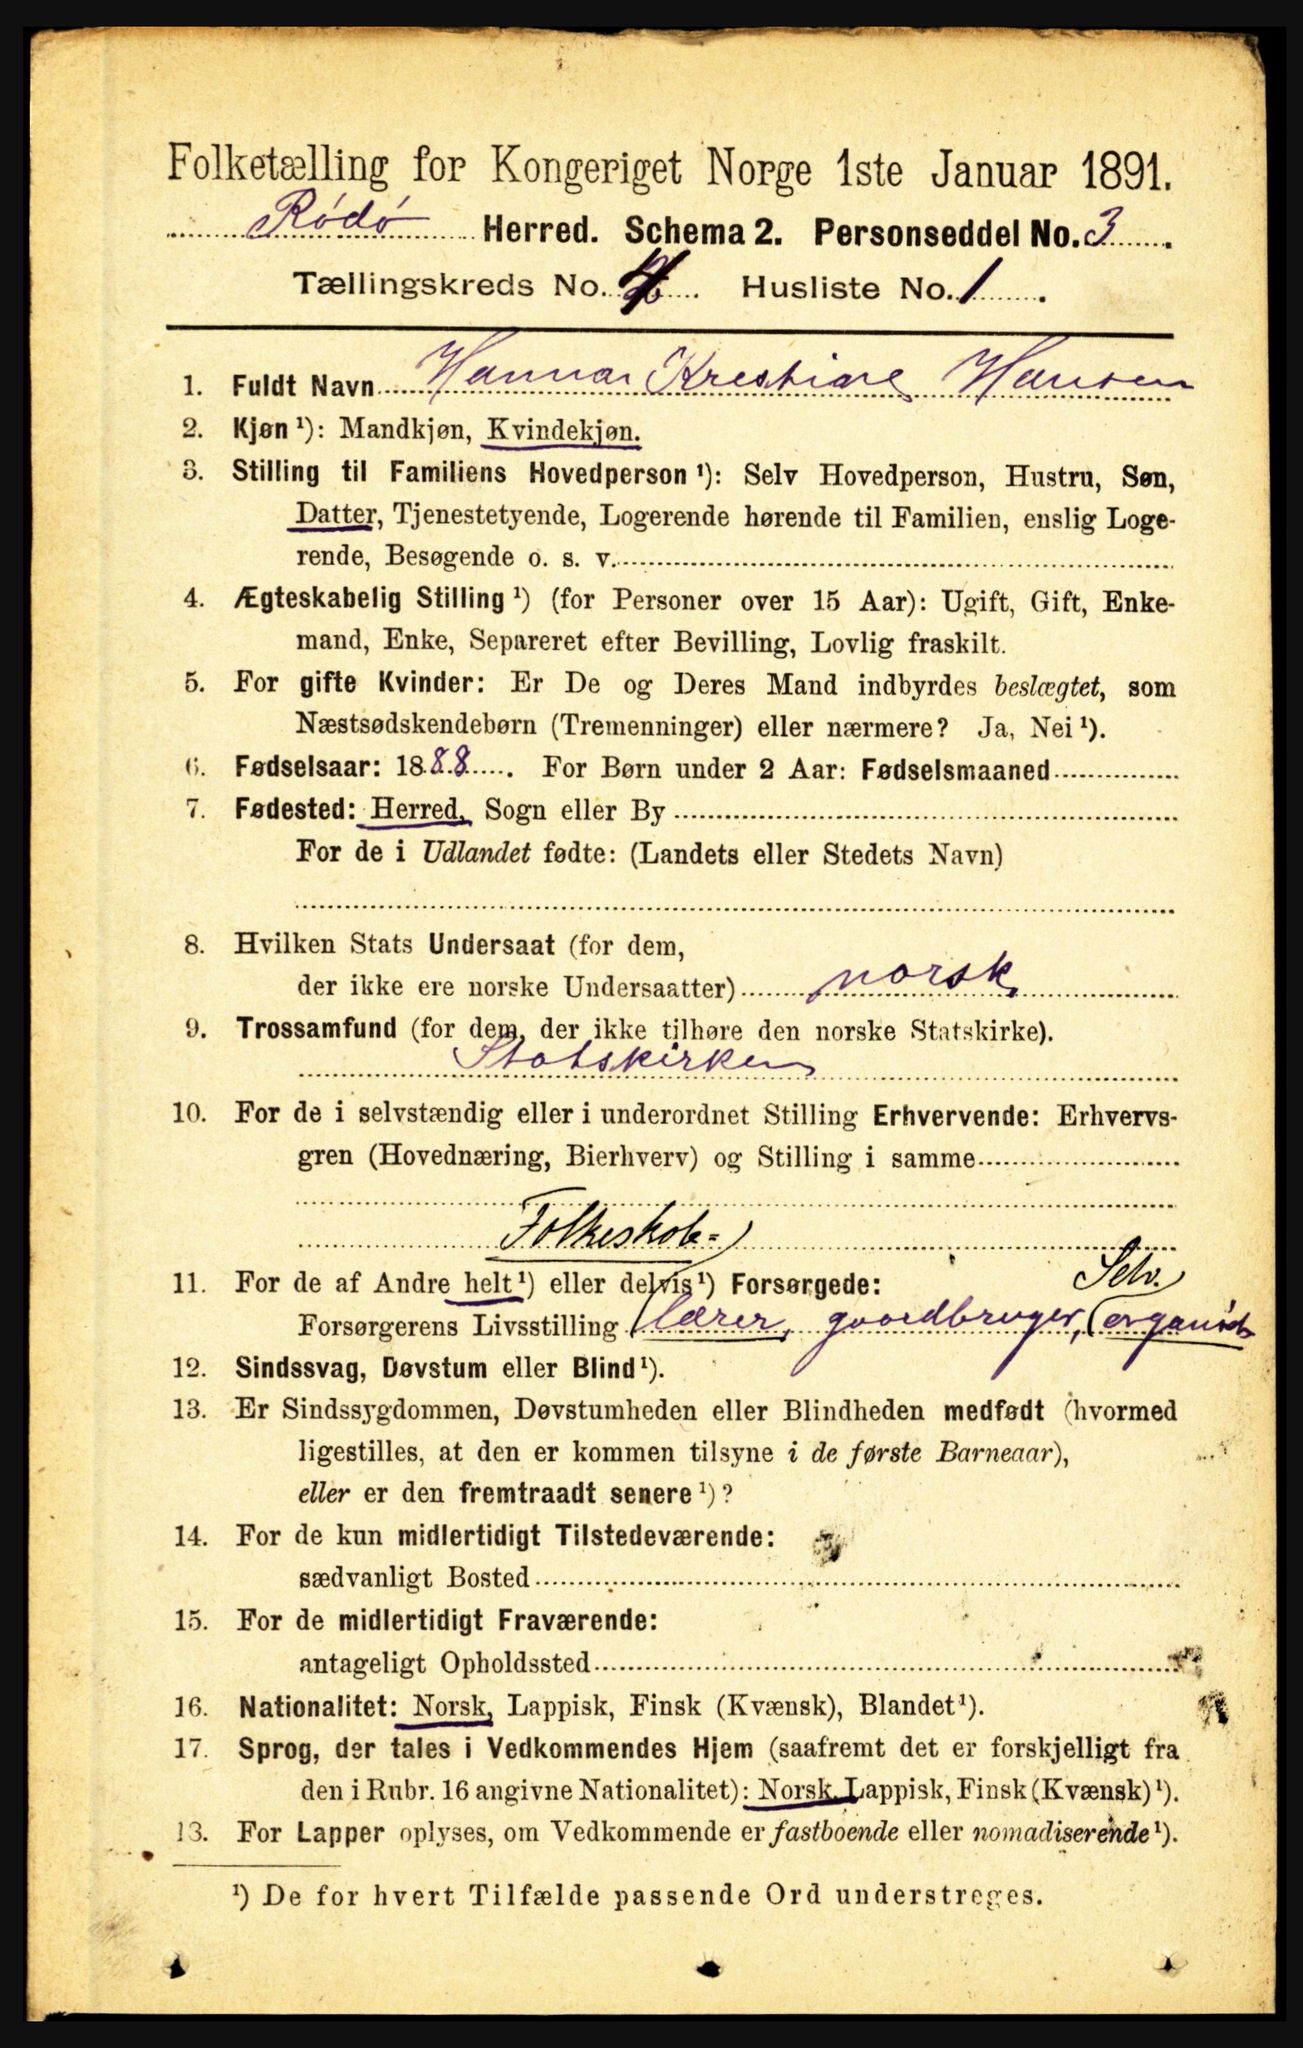 Folketælling for Kongeriget Norge 1ste Januar 1891.
Rödö Herred. Schema 2. Personseddel No. 3.
Tællingskreds No. 4. Husliste No. 1.
1. Fuldt Navn Hanna Krestiane Hansen
2. Kjøn ¹): Mandkjøn, Kvindekjøn.
3. Stilling til Familiens Hovedperson ¹): Selv Hovedperson, Hustru, Søn,
Datter, Tjenestetyende, Logerende hørende til Familien, enslig Loge-
rende, Besøgende o. s. v.
4. Ægteskabelig Stilling ¹) (for Personer over 15 Aar): Ugift, Gift, Enke-
mand, Enke, Separeret efter Bevilling, Lovlig fraskilt.
5. For gifte Kvinder: Er De og Deres Mand indbyrdes beslægtet, som
Næstsødskendebørn (Tremenninger) eller nærmere? Ja, Nei ¹).
6. Fødselsaar: 1888. For Børn under 2 Aar: Fødselsmaaned
7. Fødested: Herred, Sogn eller By
For de i Udlandet fødte: (Landets eller Stedets Navn)
8. Hvilken Stats Undersaat (for dem,
der ikke ere norske Undersaatter) norsk
9. Trossamfund (for dem, der ikke tilhøre den norske Statskirke).
Statskirken
10. For de i selvstændig eller i underordnet Stilling Erhvervende: Erhvervs-
gren (Hovednæring, Bierhverv) og Stilling i samme
Folkeskole-
11. For de af Andre helt ¹) eller delvis ¹) Forsørgede: Selv.
Forsørgerens Livsstilling lærer, gaardbruger, organist
12. Sindssvag, Døvstum eller Blind ¹).
13. Er Sindssygdommen, Døvstumheden eller Blindheden medfødt (hvormed
ligestilles, at den er kommen tilsyne i de første Barneaar),
eller er den fremtraadt senere ¹)?
14. For de kun midlertidigt Tilstedeværende:
sædvanligt Bosted
15. For de midlertidigt Fraværende:
antageligt Opholdssted
16. Nationalitet: Norsk, Lappisk, Finsk (Kvænsk), Blandet ¹).
17. Sprog, der tales i Vedkommendes Hjem (saafremt det er forskjelligt fra
den i Rubr. 16 angivne Nationalitet): Norsk, Lappisk, Finsk (Kvænsk) ¹).
13. For Lapper oplyses, om Vedkommende er fastboende eller nomadiserende ¹).
¹) De for hvert Tilfælde passende Ord understreges.